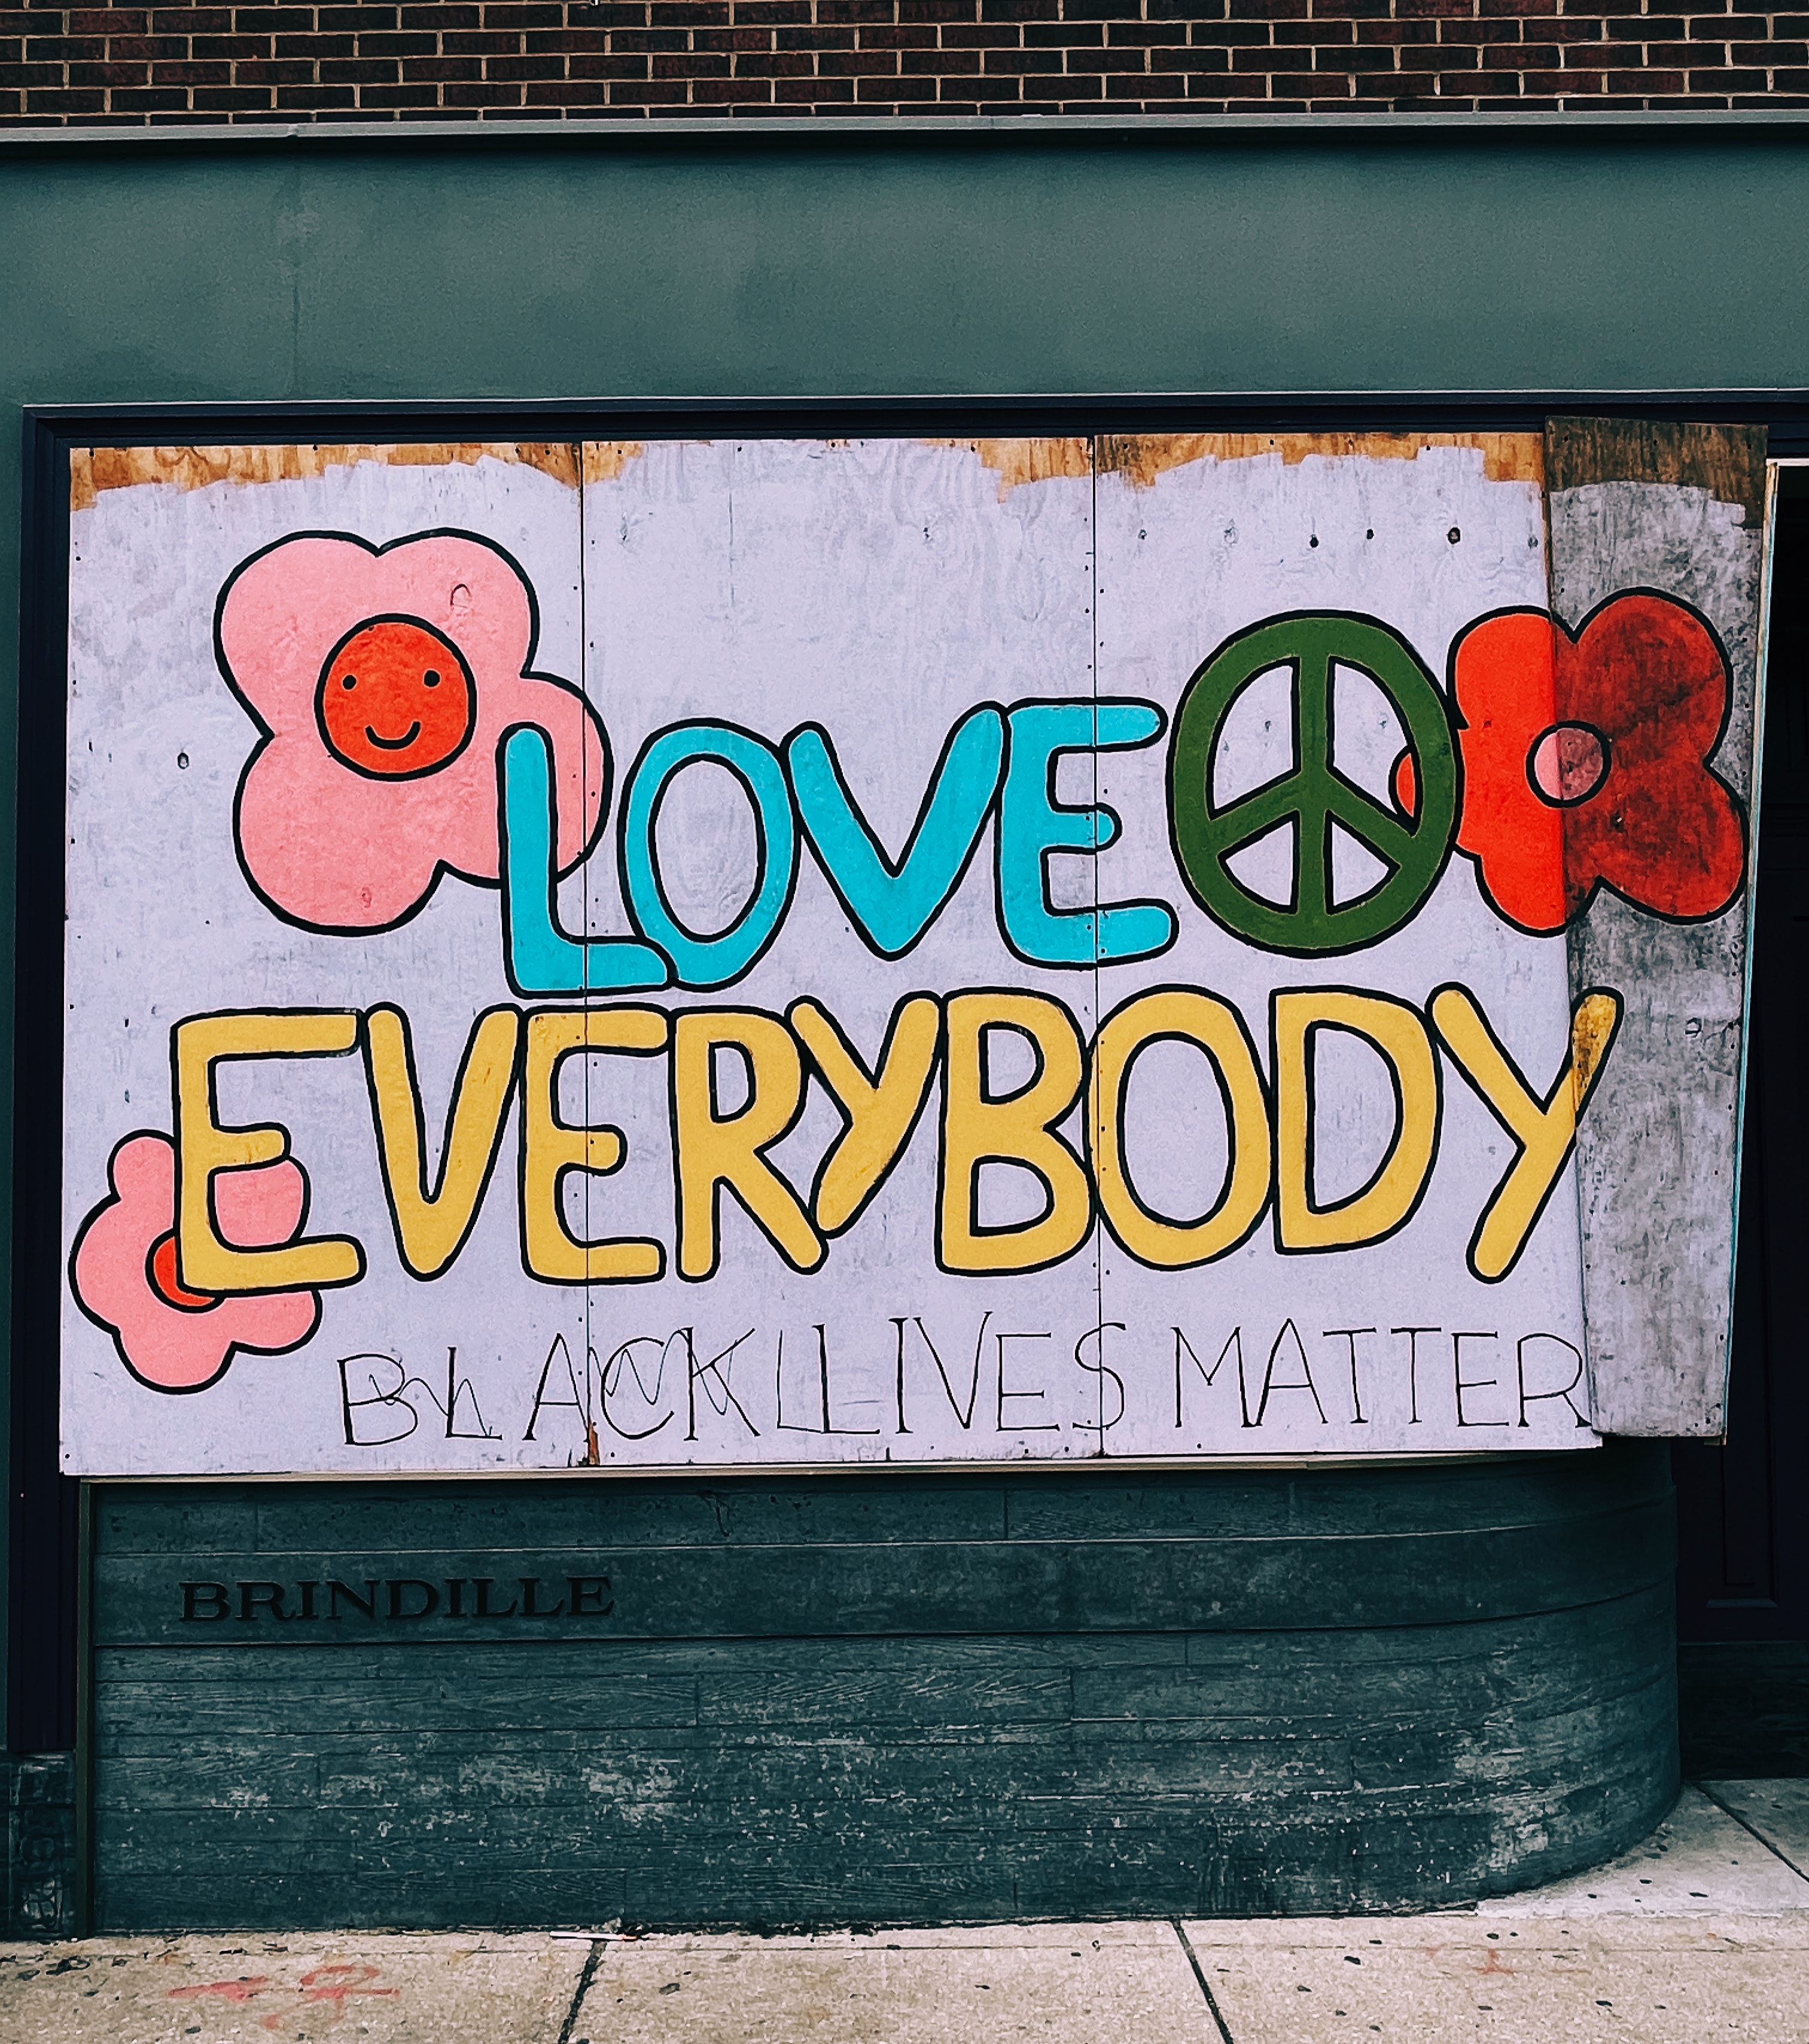 LOVE
EVERYBODY
BLACK LLIVES MATTER
BRINDILLE